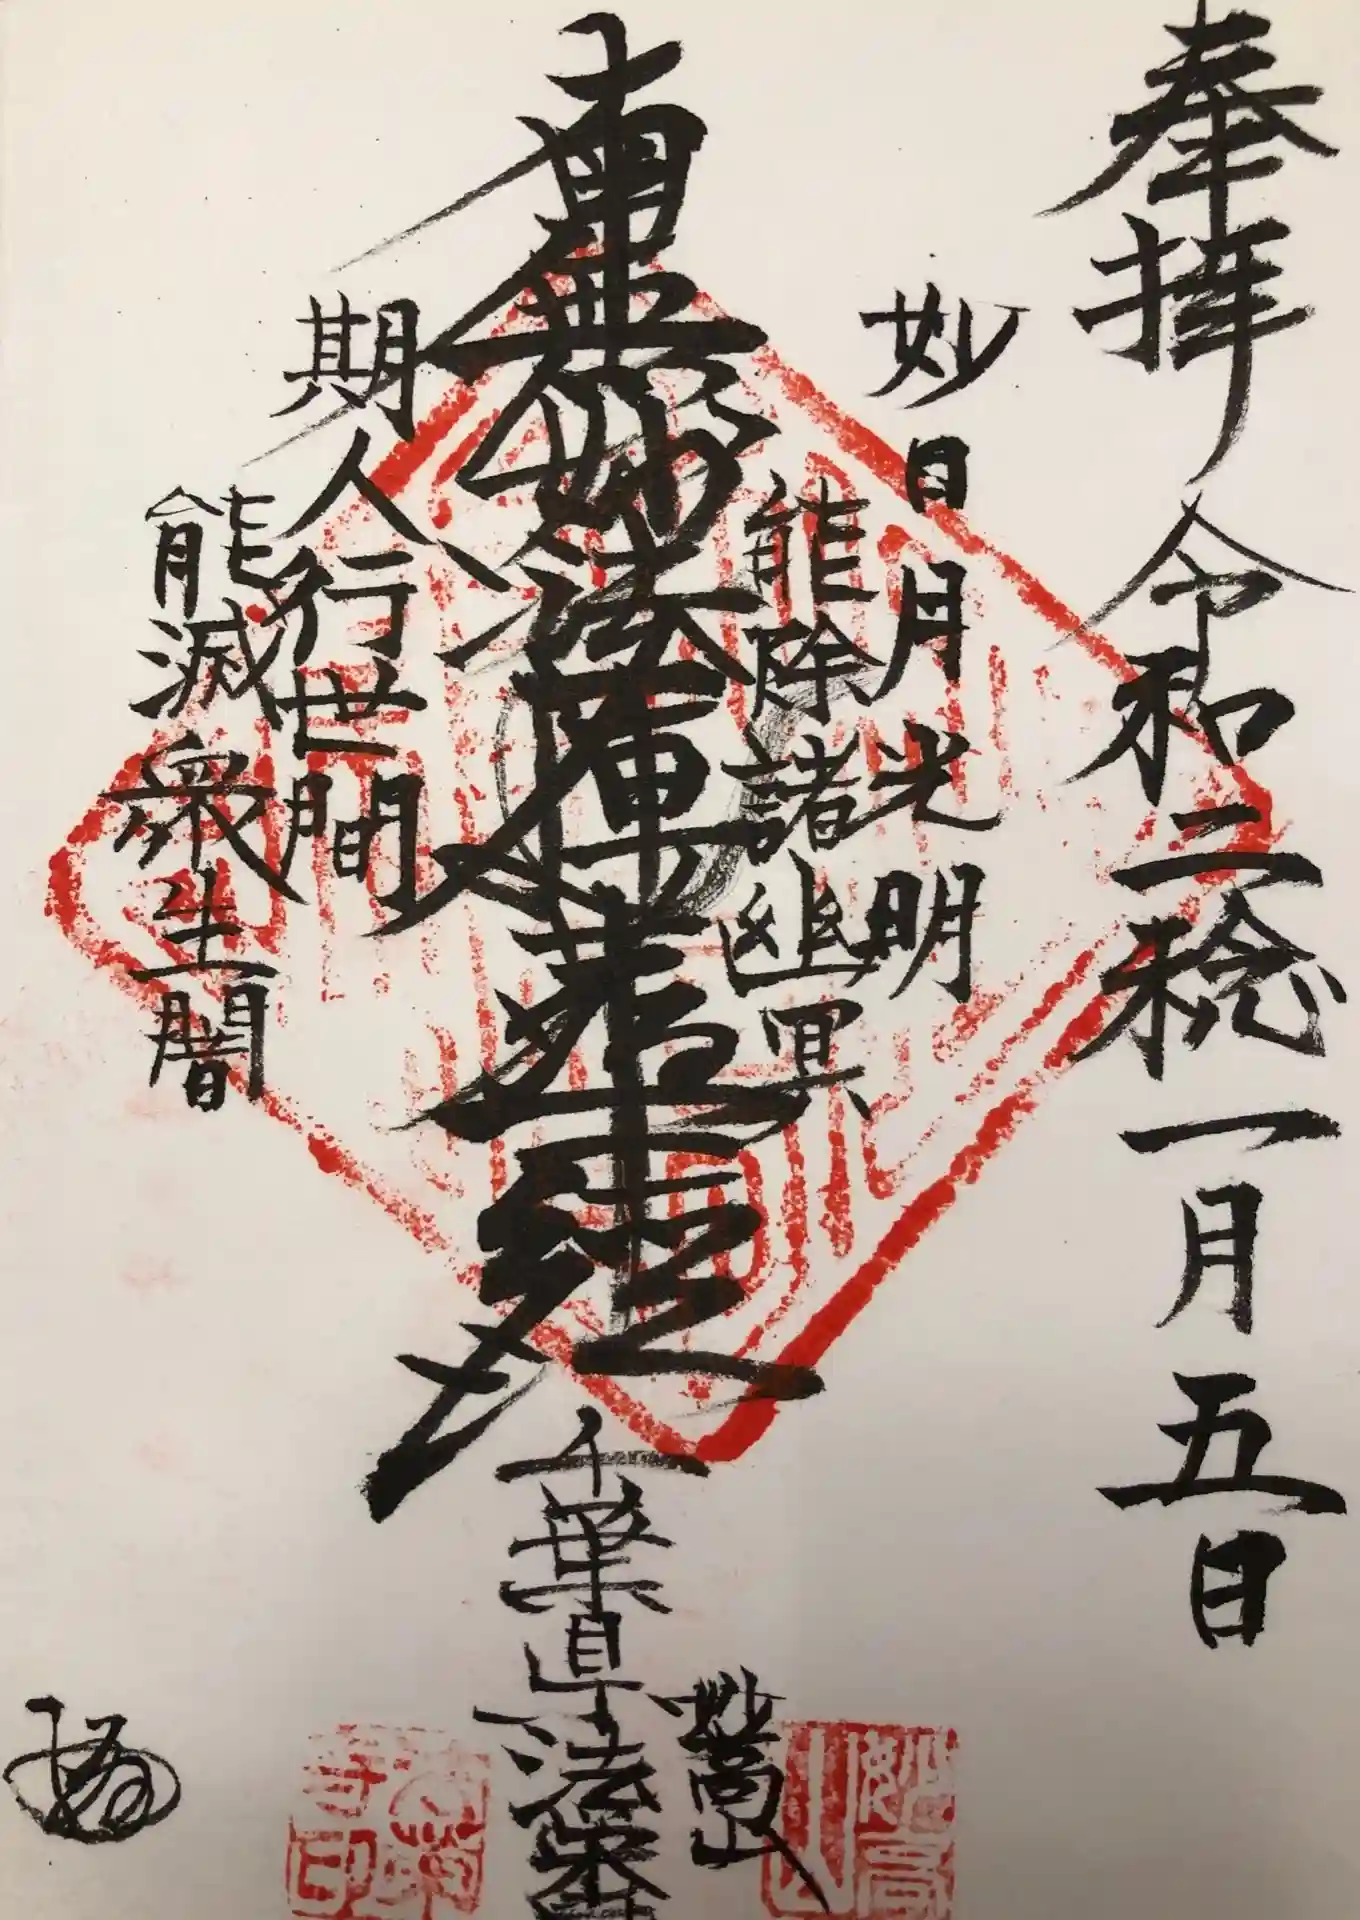 奉拝 令和二稔一月五日
妙日月光明
能除諸幽冥
南無妙法蓮華經
期人行世間
能滅衆生闇
妙高山
千葉